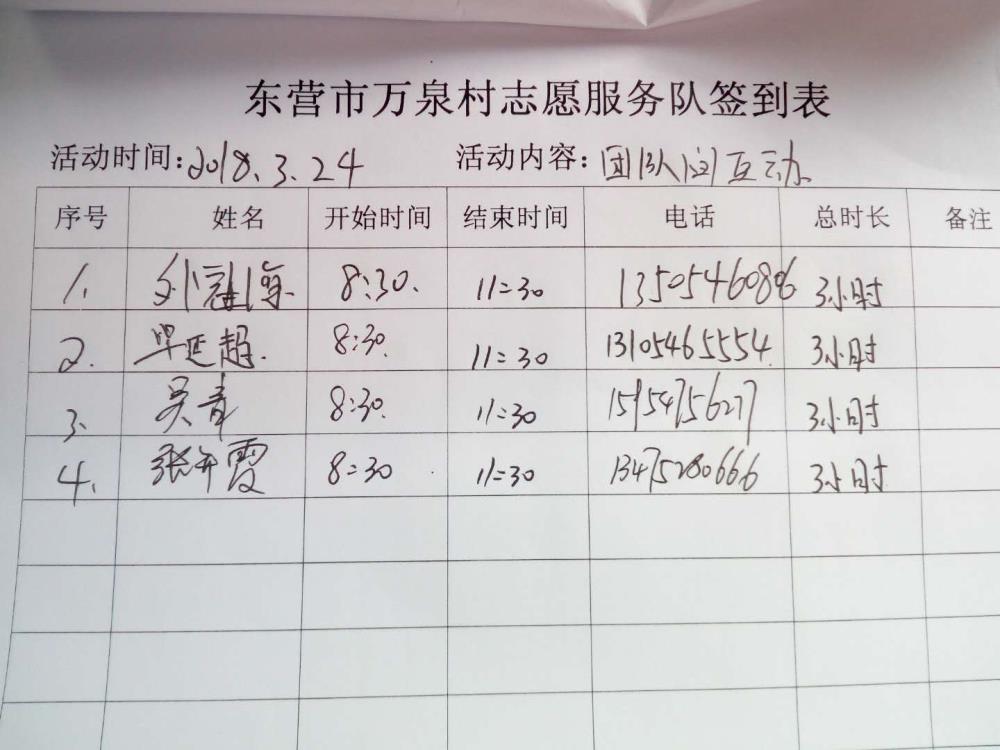 东营市万泉村志愿服务队签到表
活动时间:2018.3.24 活动内容:团队间互动
序号 姓名 开始时间 结束时间 电话 总时长 备注
1. 刘冠海 8:30. 11:30 13505460806 3小时
2. 毕延超. 8:30. 11:30 13105465554 3小时
3. 吴章 8:30. 11:30 15954756277 3小时
4. 张年霞 8:30 11:30 13475280666 3小时